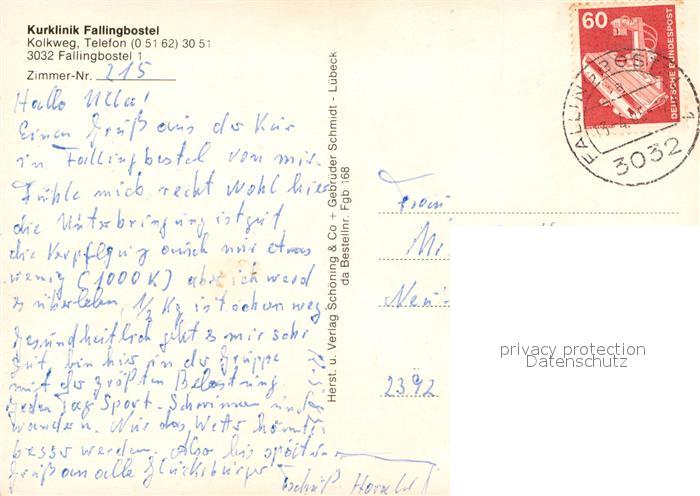 Kurklinik Fallingbostel
Kolkweg, Telefon (0 51 62) 30 51
3032 Fallingbostel 1
Zimmer-Nr. 215
Hallo Ulla!
Einen Gruß aus der Kur
in Fallingbostel von mir.
Fühle mich recht wohl hier
die Unterbringung ist gut
die Verpflegung auch nur etwas
wenig (1000 K) aber ich werd
es überleben, 1/2 Kg ist schon weg
Gesundheitlich geht es mir sehr
gut, bin hier in der Gruppe
mit der größten Belastung
jeden Tag Sport - Schwimmen und
wandern. Nur das Wetter könnte
besser werden. Also bis später
Gruß an alle Glücksbürger
Tschüß Harald
Herst. u. Verlag Schöning & Co + Gebrüder Schmidt - Lübeck
da Bestellnr. Fgb 168
60
DEUTSCHE BUNDESPOST
FALLINGBOSTEL 1
3032
Frau
2392
privacy protection
Datenschutz